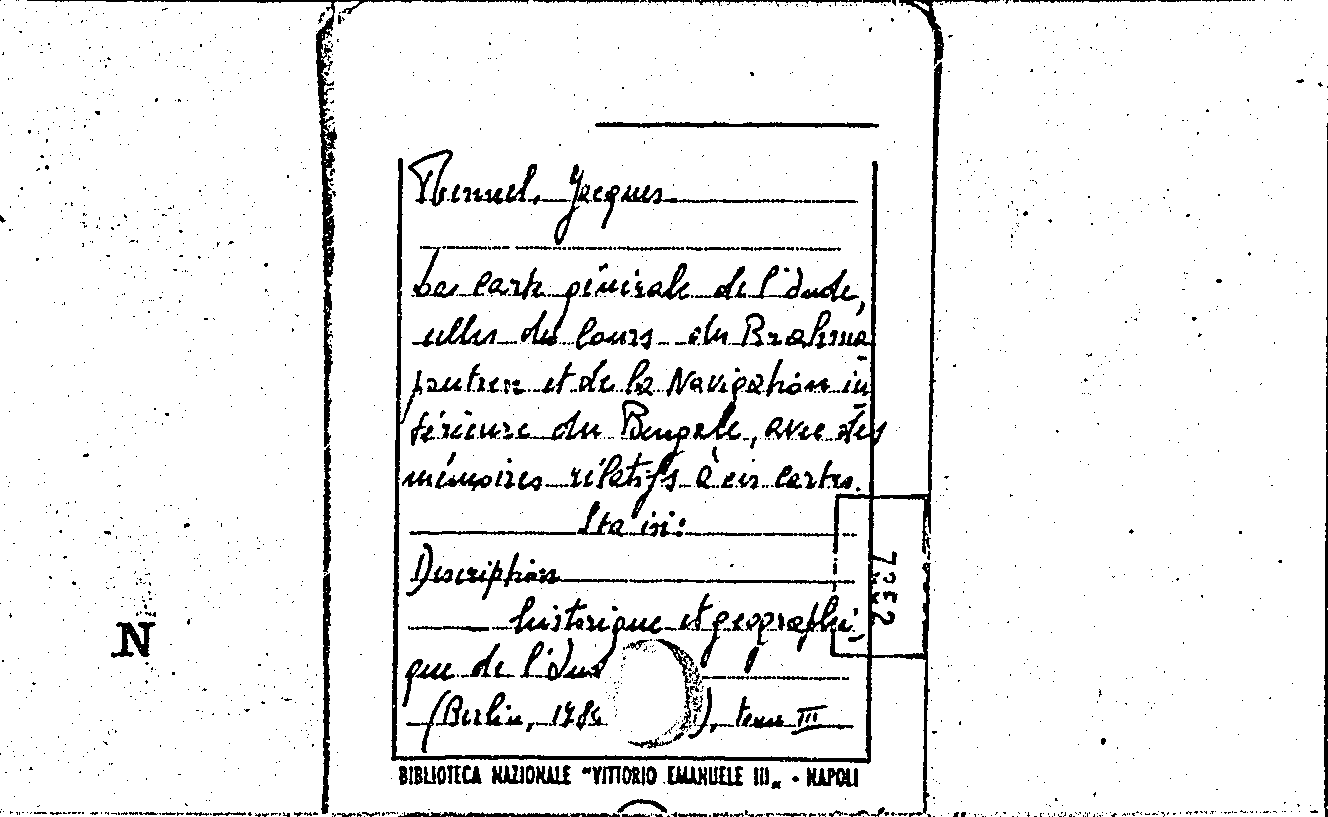 Rennel, Jacques
La carte générale de l'Inde,
celles du Cours du Brahma
pautren et de la Navigation in
térieure du Bengale, avec des
mémoires rélatifs à ces cartes.
Sta in:
Description
historique et geographi-
que de l'Inde
(Berlin, 178 ), tome III
BIBLIOTECA NAZIONALE "VITTORIO EMANUELE III„ - NAPOLI
N